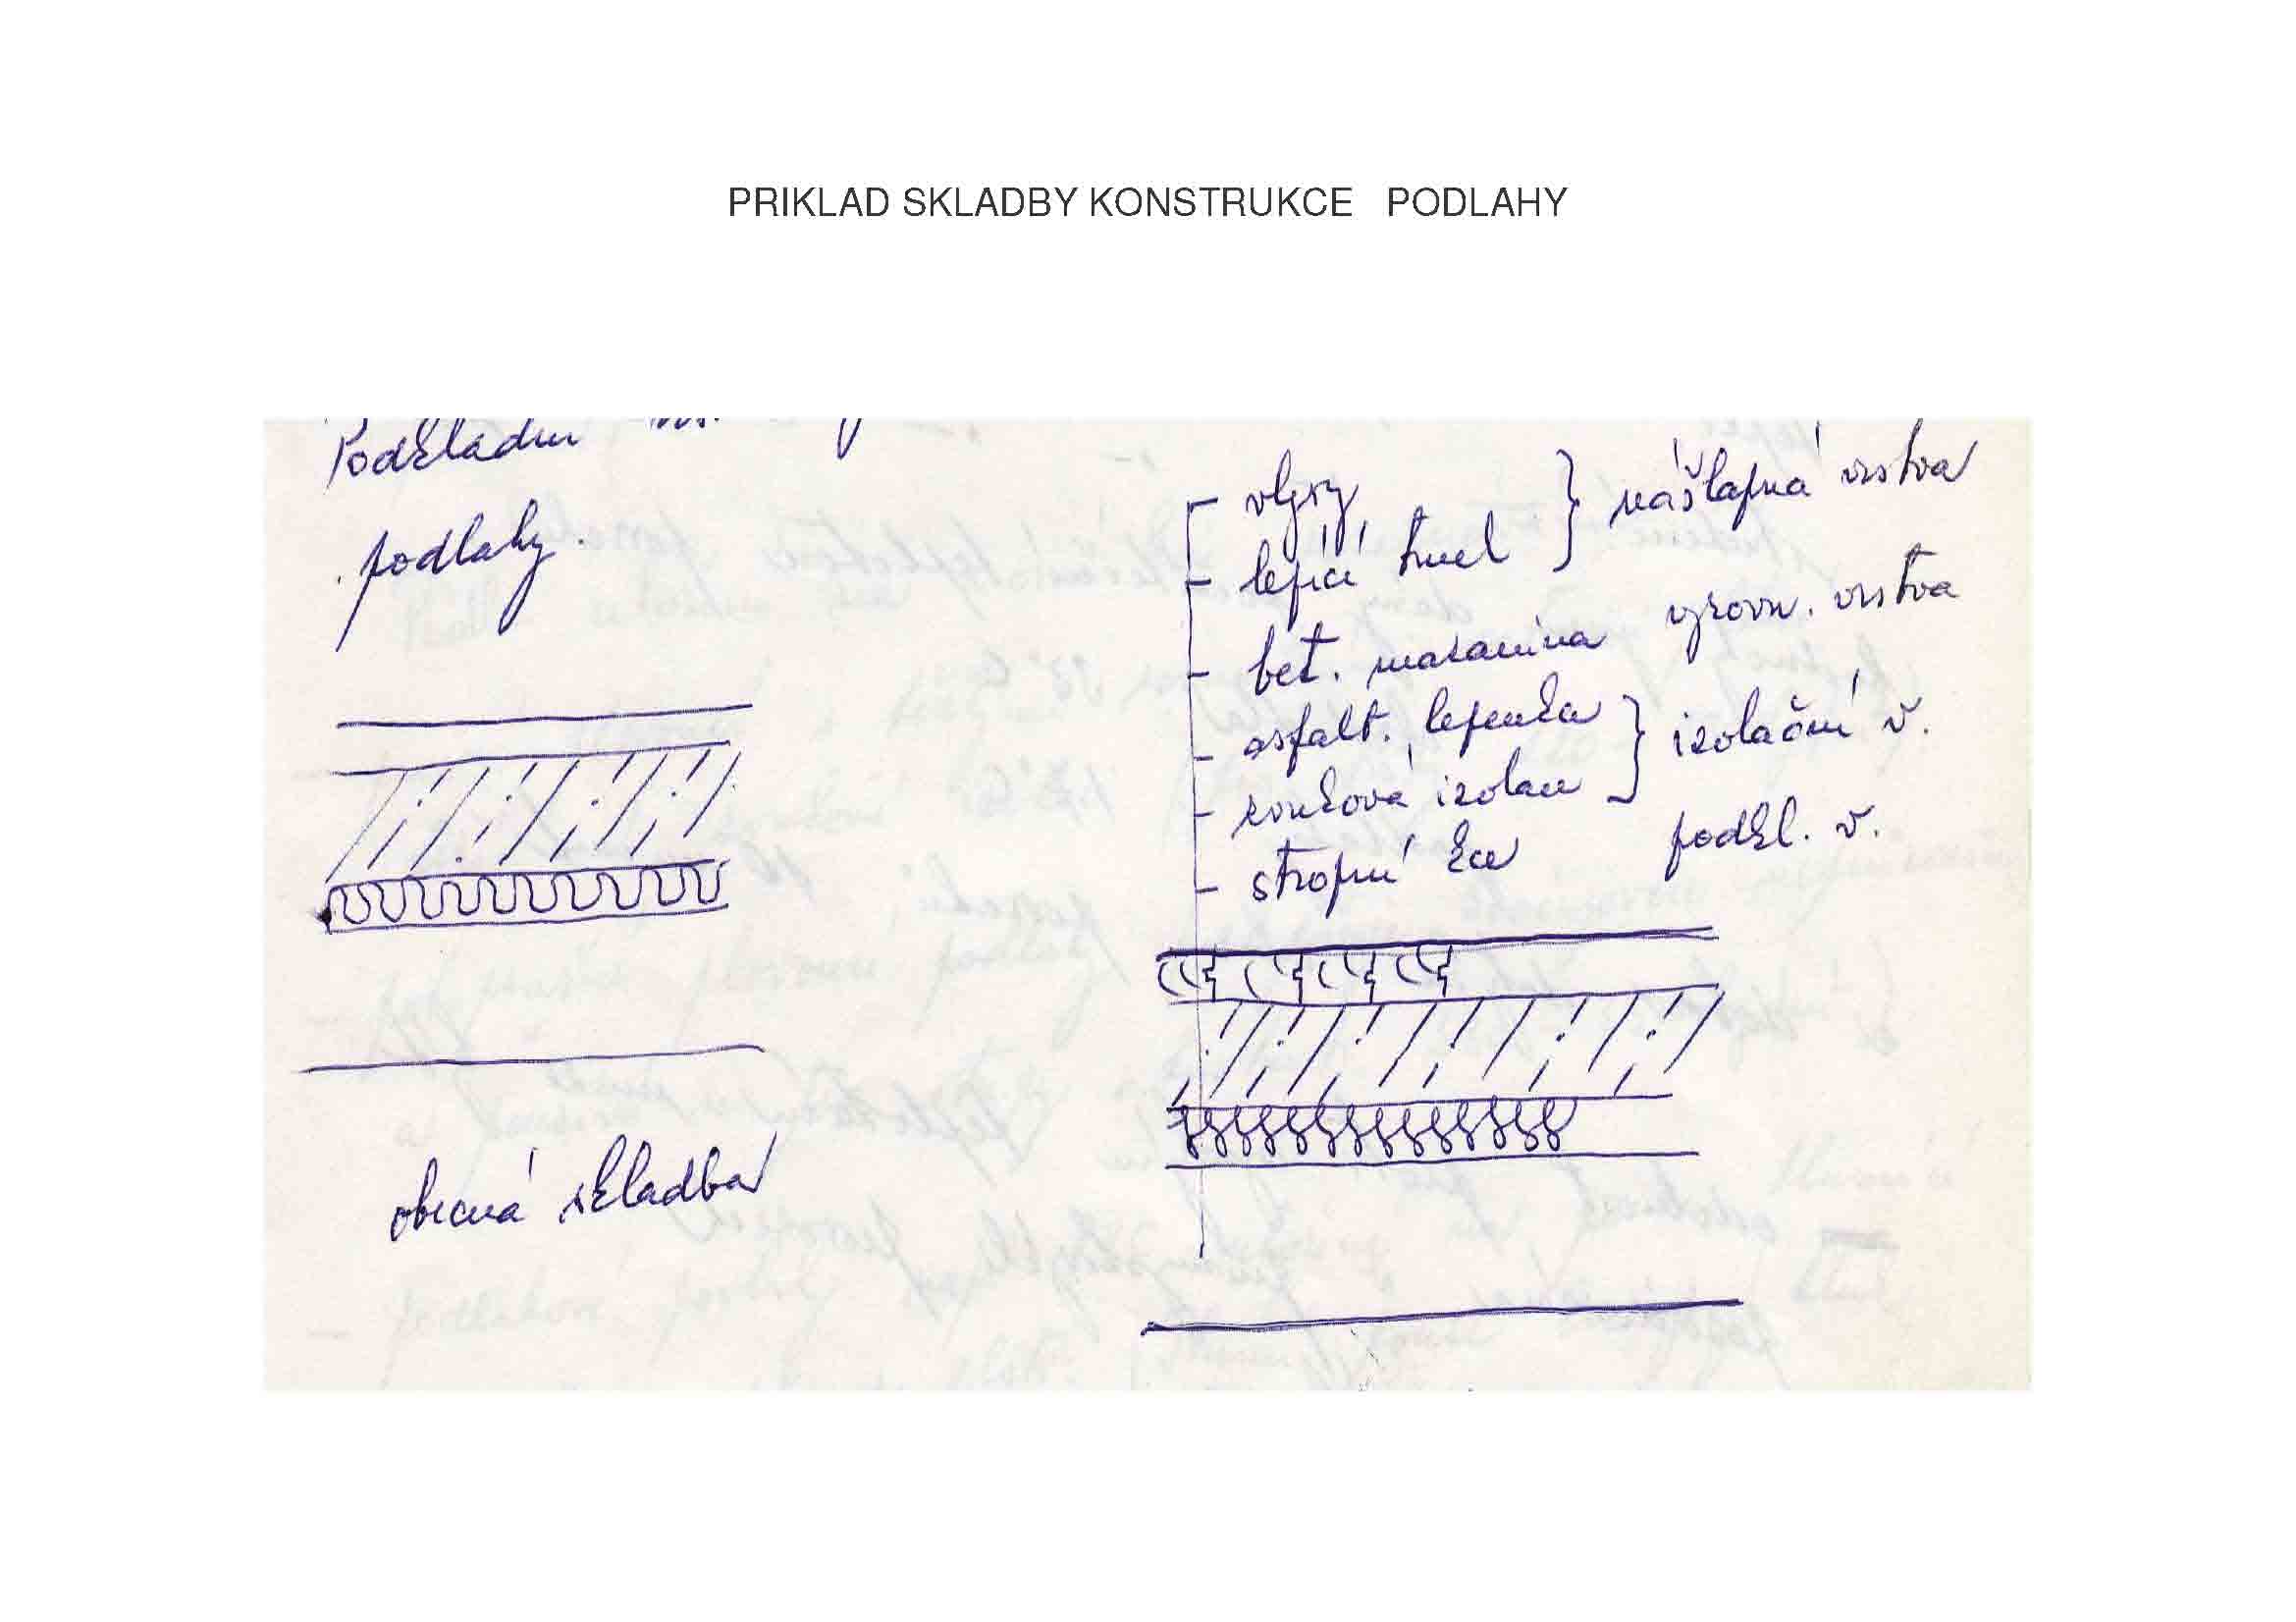 PRIKLAD SKLADBY KONSTRUKCE PODLAHY
Podkladní
podlahy.
vlysy
lepící tmel } nášlapná vrstva
bet. mazanina vyrovn. vrstva
asfalt. lepenka
zvuková izolace } izolační v.
stropní kce podkl. v.
obecná skladba